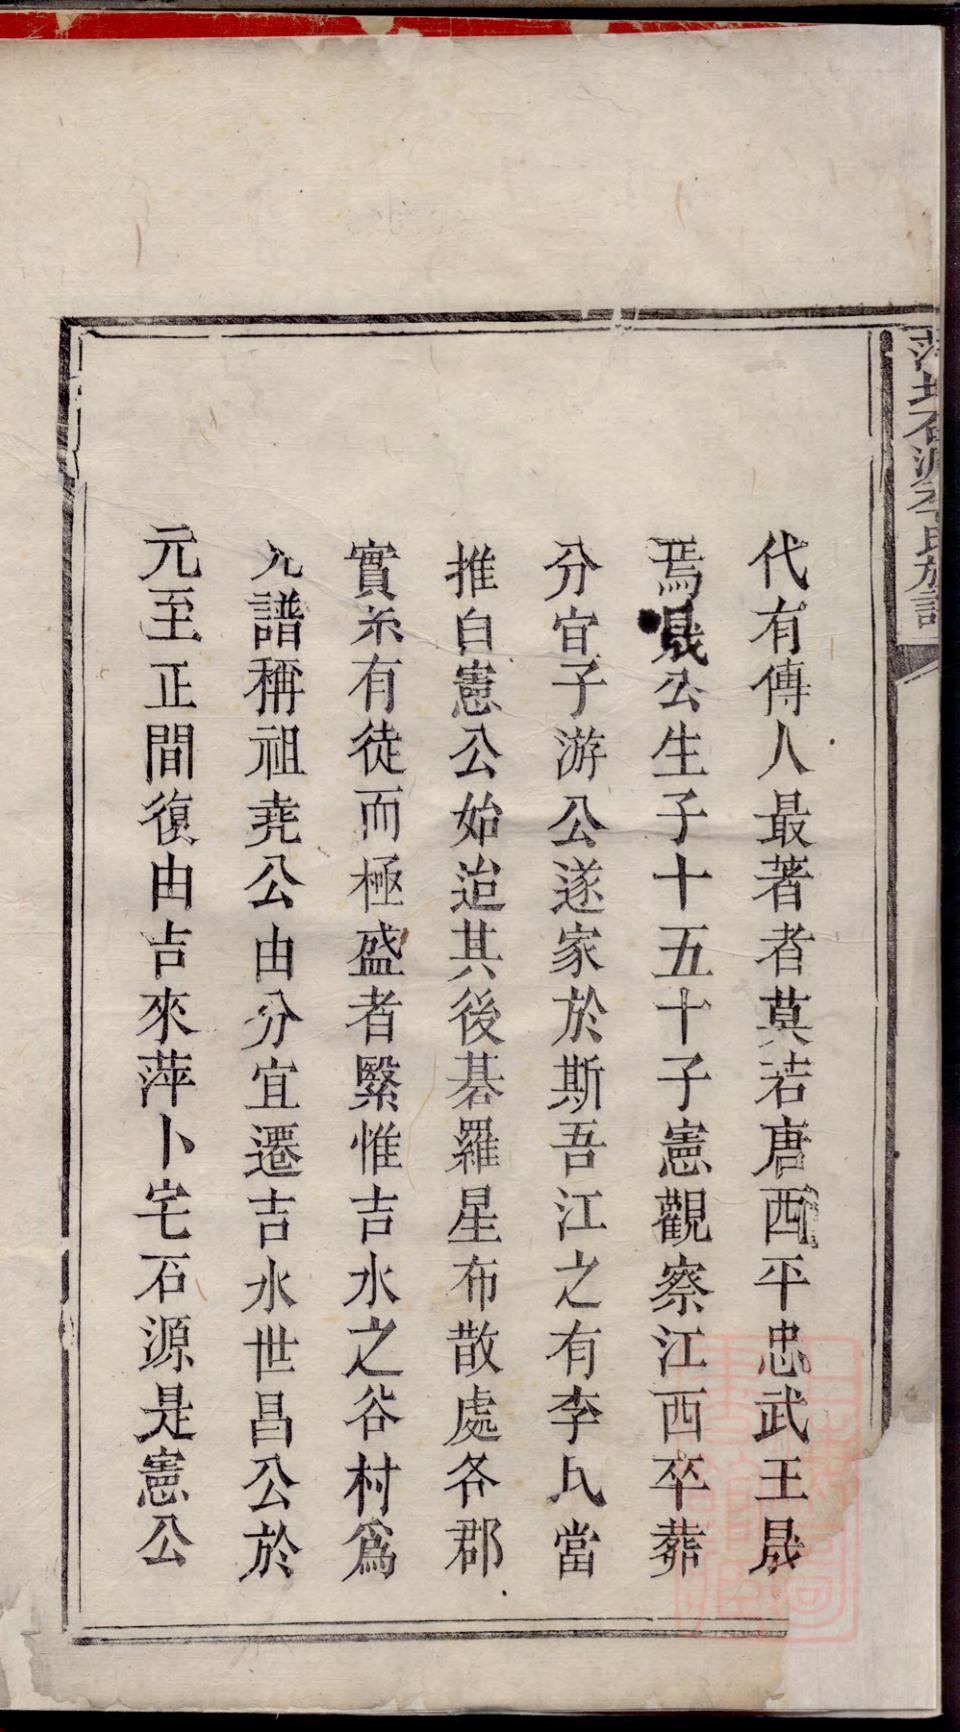 石源李氏族譜
代有傳人最著者莫若唐西平忠武王晟
焉晟公生子十五十子憲觀察江西卒葬
分宜子游公遂家於斯吾江之有李氏當
推自憲公始迨其後碁羅星布散處各郡
實系有徒而極盛者繄惟吉水之谷村爲
尤譜稱祖堯公由分宜遷吉水世昌公於
元至正間復由吉來萍卜宅石源是憲公